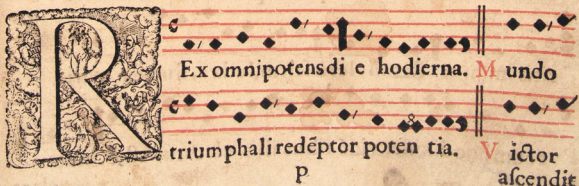 R Ex omnipotens di e hodierna. M undo
triumphali redẽptor poten tia. V ictor
p ascendit